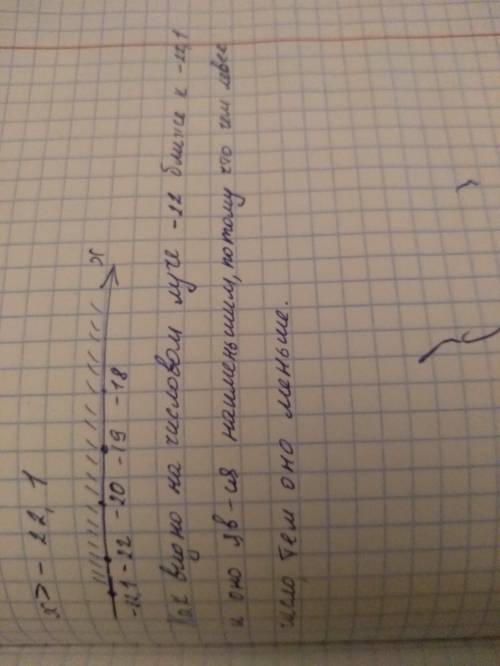 x > - 22,1
-22,1 -22 -20 -19 -18
x
Как видно на числовом луче -22 ближе к -22,1
и оно яв-ся наименьшим, потому что чем левее
число, тем оно меньше.